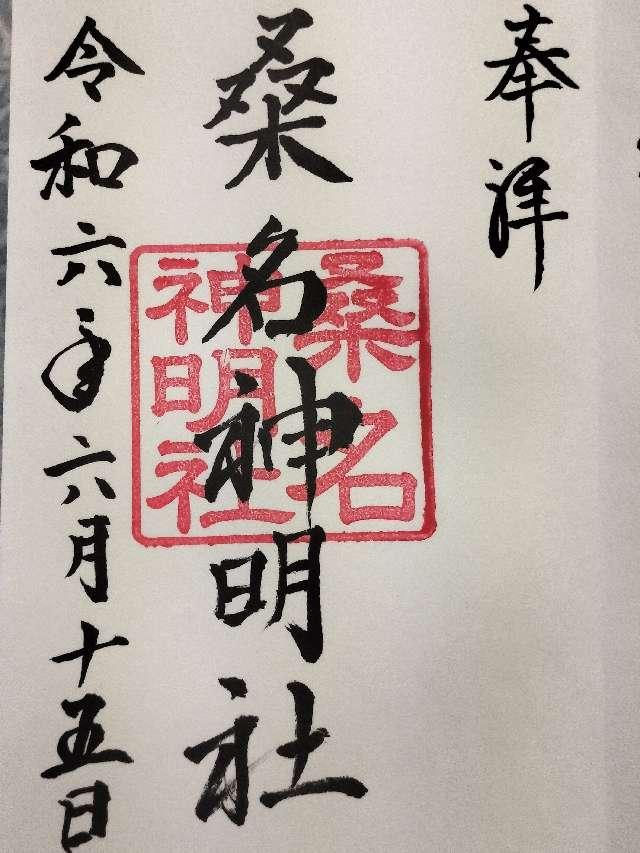 奉拝
桑名神明社
桑名
神明社
令和六年六月十五日